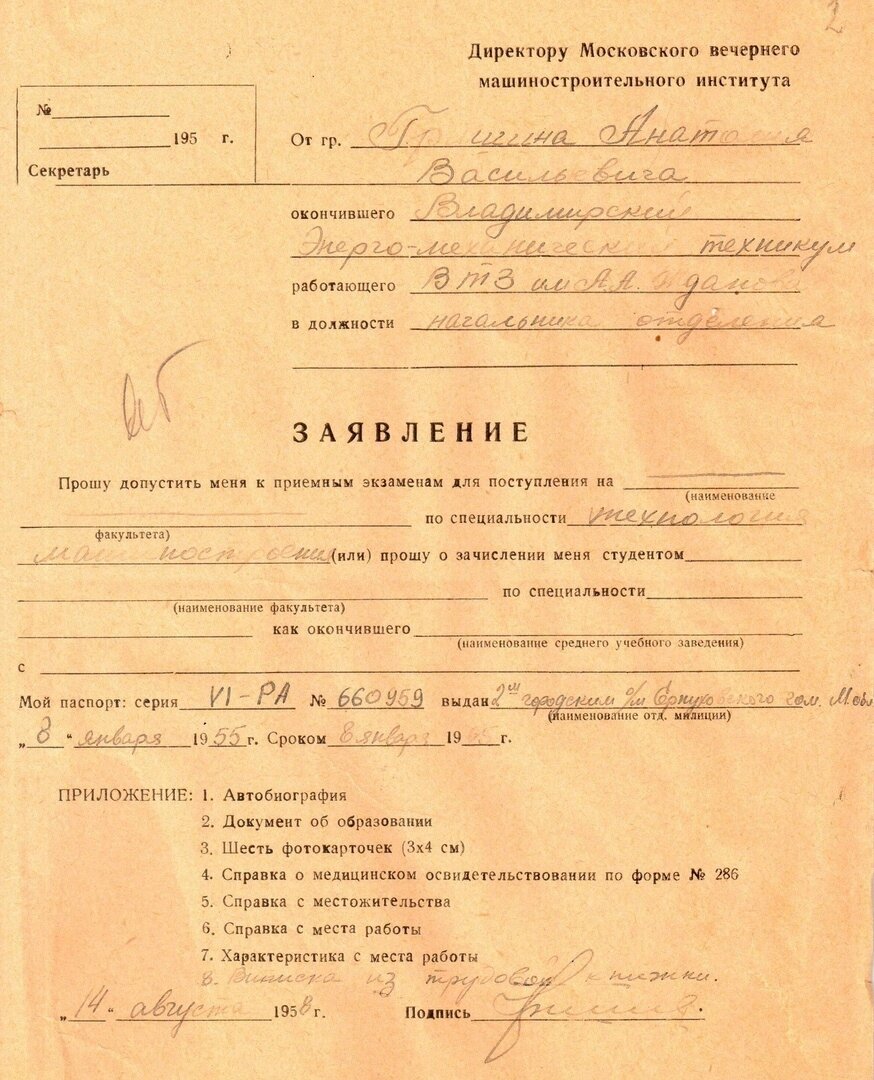 2
Директору Московского вечернего
машиностроительного института
№
195 г.
Секретарь
От гр. Гришина Анатолия
Васильевича
окончившего Владимирский
Энерго-механический техникум
работающего ВТЗ им. А.А. Жданова
в должности начальника отделения
ЗАЯВЛЕНИЕ
Прошу допустить меня к приемным экзаменам для поступления на
(наименование
по специальности технология
факультета)
машиностроения (или) прошу о зачислении меня студентом
по специальности
(наименование факультета)
как окончившего
(наименование среднего учебного заведения)
с
Мой паспорт: серия VI-РА № 660959 выдан 2ым городским о/м Серпуховского гом. М. обл
(наименование отд. милиции)
„8“ января 1955 г. Сроком 8 января 19 г.
ПРИЛОЖЕНИЕ: 1. Автобиография
2. Документ об образовании
3. Шесть фотокарточек (3х4 см)
4. Справка о медицинском освидетельствовании по форме № 286
5. Справка с местожительства
6. Справка с места работы
7. Характеристика с места работы
8. Выписка из трудовой книжки.
„14“ августа 1958 г. Подпись